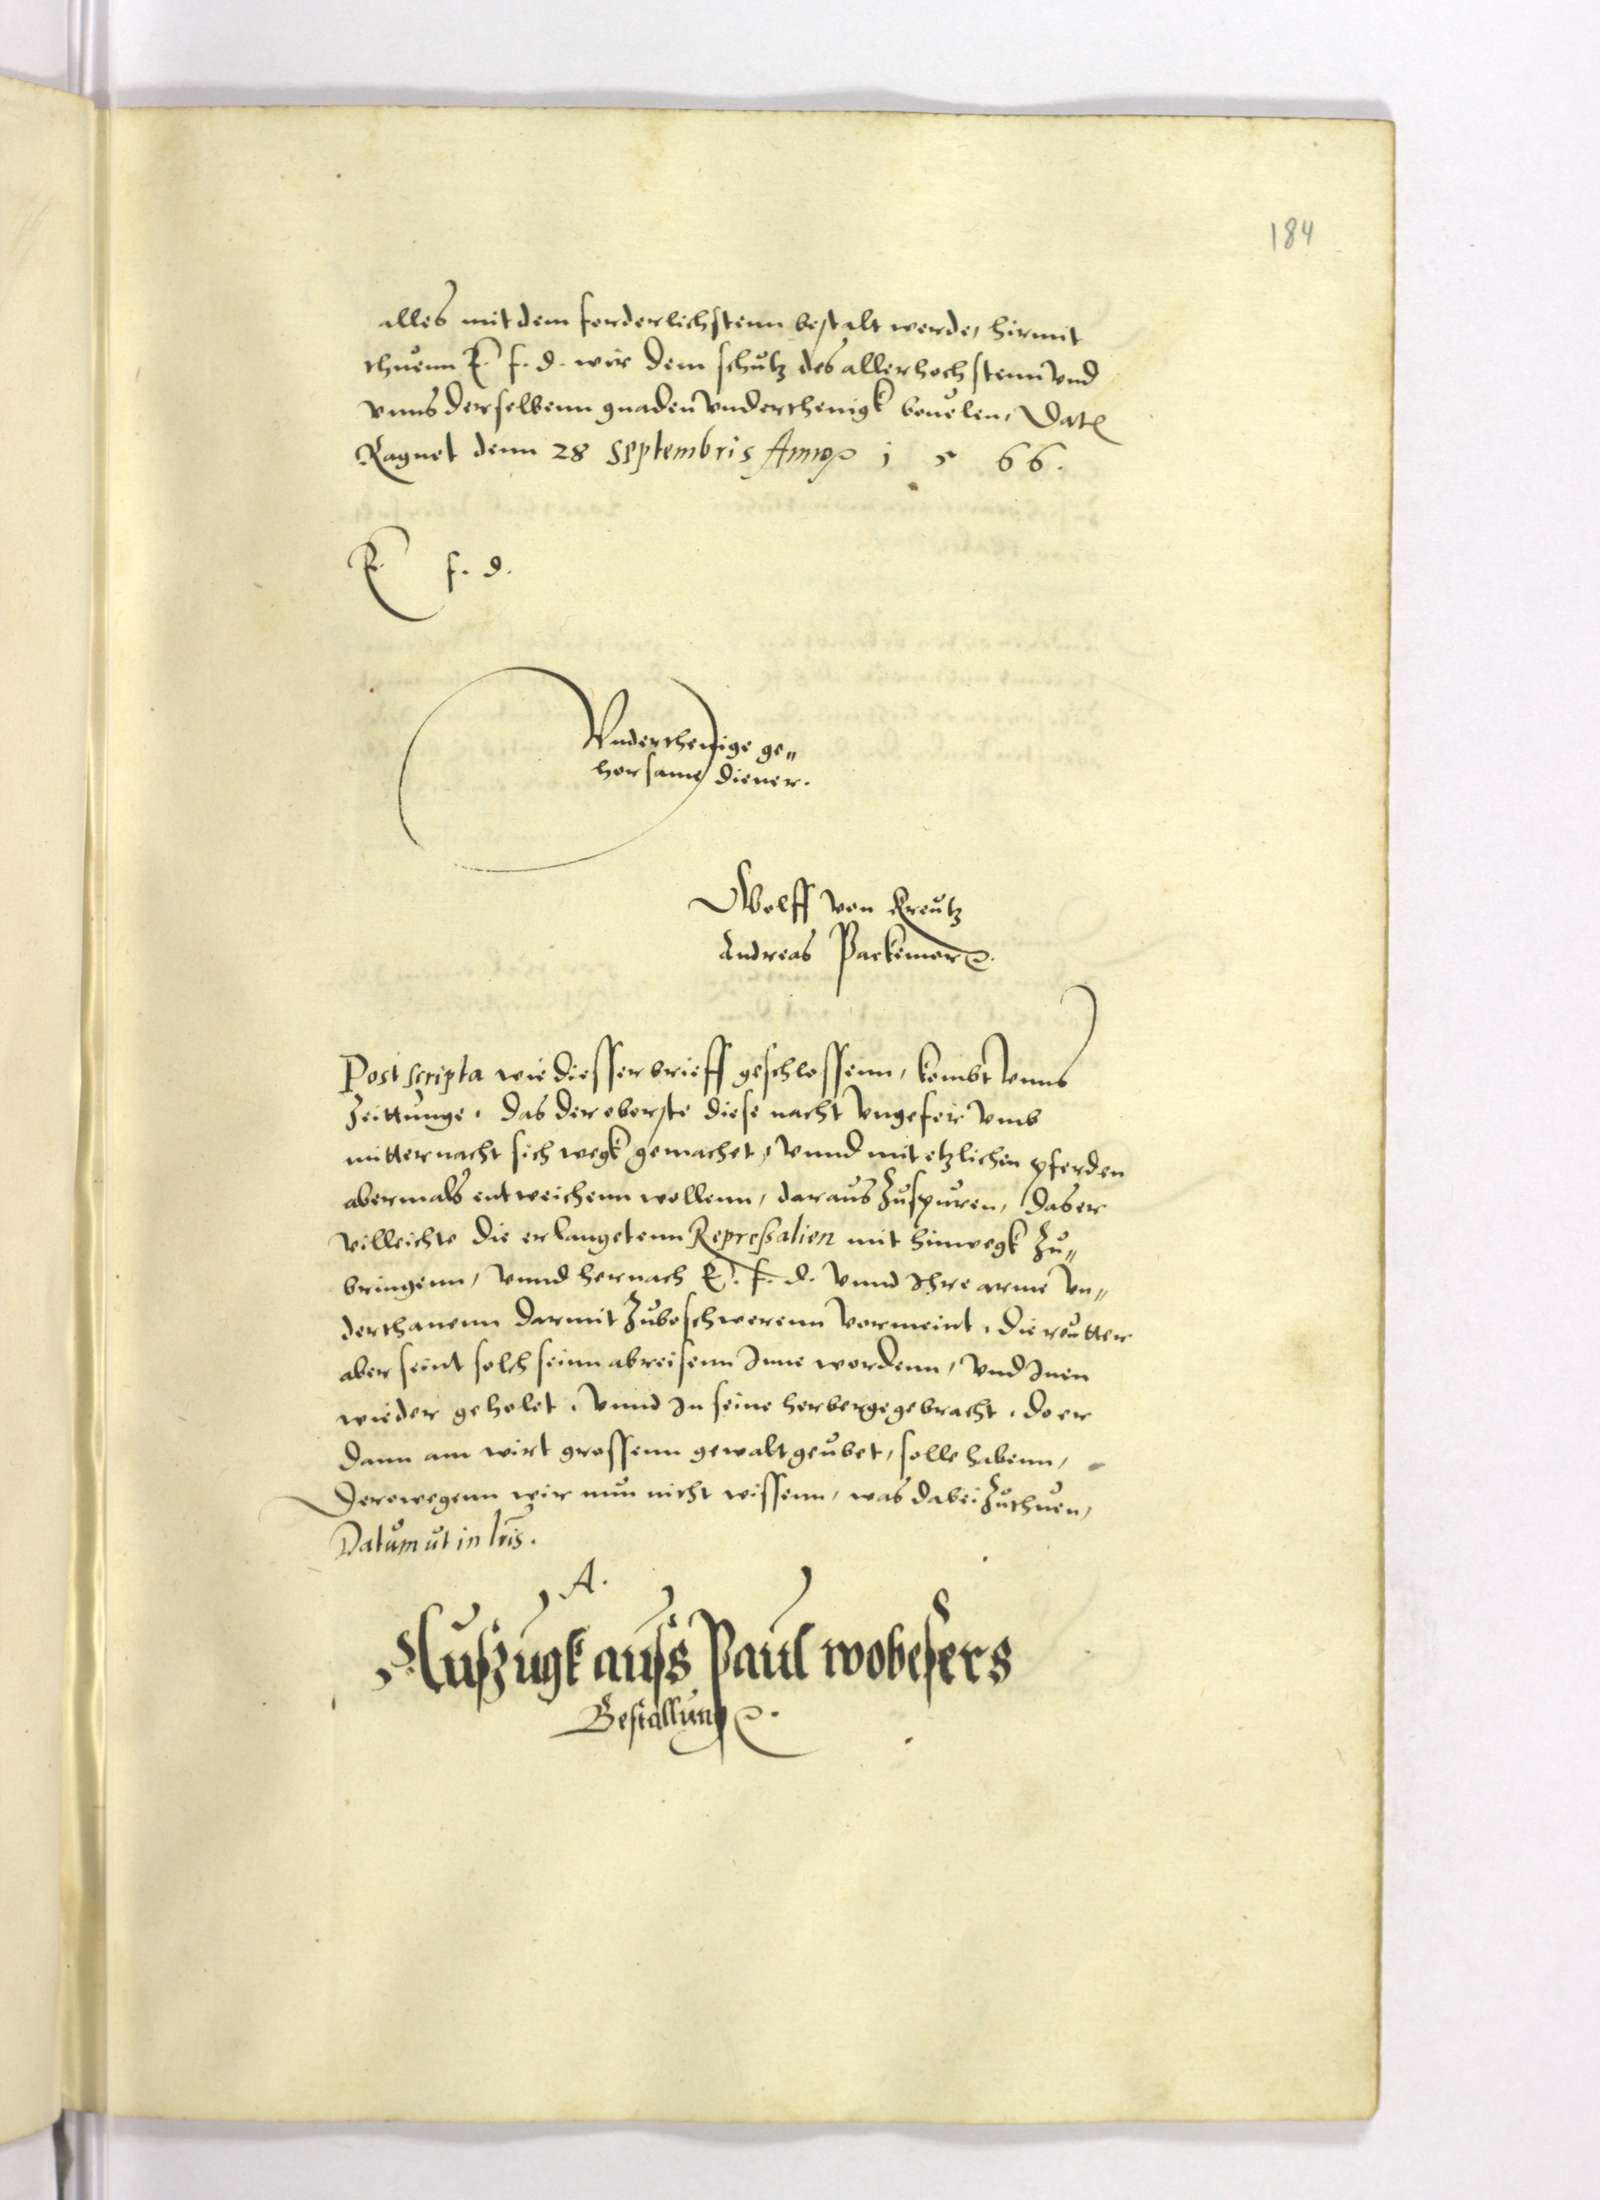 184
alles mit dem forderlichstenn bestalt werde, hirmit
thuenn E. f. d. wir dem schutz des allerhochstenn vnd
vnns derselbenn gnaden vnderthenigk beuelen, Dat
Ragnet denn 28 Septembris Anno 1 5 66.
E. f. d.
Vnderthenige ge„
horsame diener.
Wolff von Kreutz
Andreas Packemor
Post scripta wie diesser brieff geschlossenn, kombt vnns
Zeittunge. das der oberste diese nacht vngefeir vmb
mitternacht sich wegk gemachet, vnnd mit etzlichen pferden
abermals entweichenn wollenn, daraus Zuspuren, das er
villeichte die erlangetenn Represalien mit hinwegk Zu„
bringenn, vnnd hernach E. f. d. vnnd Ihre arme vn„
derthanenn darmit Zubeschwerenn vormeint, die reutter
aber seint solch seinn abreisenn Inne wordenn, vnd Inen
wieder geholet, vnnd In seine herberge gebracht, do er
dann am wirt grossenn gewalt geubet, solle habenn,
Derowegenn wir nun nicht wissenn, was dabei Zuthuen,
Datum ut in lris.
A.
Auszugk auss Paul wobesers
Bestallung